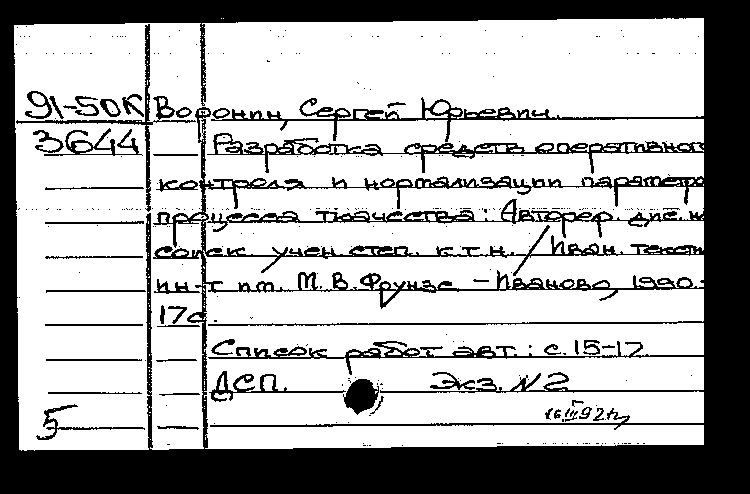 91-50К Воронин, Сергей Юрьевич.
3644 Разработка средств оперативног
контроля и нормализации параметро
процесса ткачества: Автореф. дис. н
соиск. учен. степ. к.т.н. / Иван. текст
ин-т им. М.В. Фрунзе - Иваново, 1990.-
17с.
Список работ авт.: с.15-17
ДСП. Экз. N2
5 16 III 92г